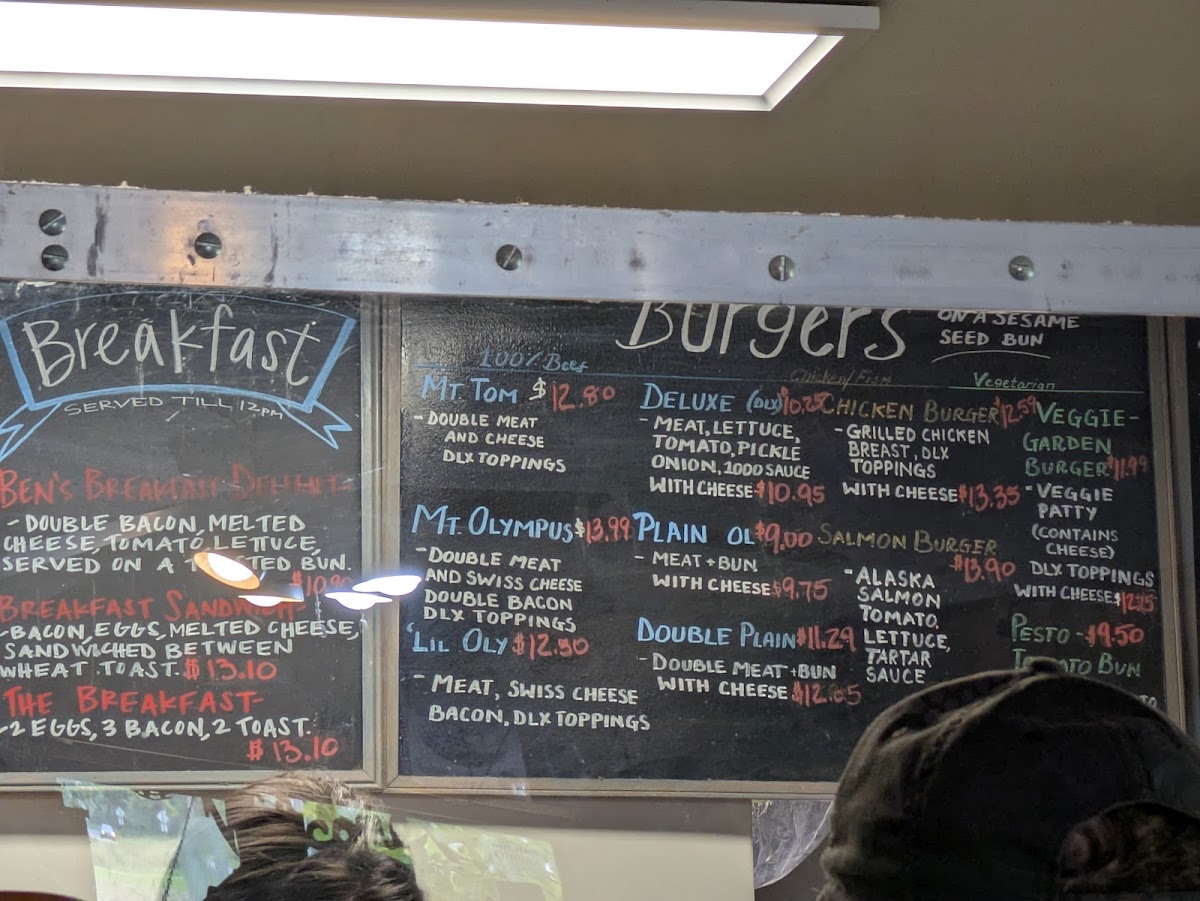 Breakfast
SERVED TILL 12PM
BEN'S BREAKFAST
- DOUBLE BACON, MELTED
CHEESE, TOMATO, LETTUCE,
SERVED ON A BUN.
BREAKFAST SANDWICH-
-BACON, EGGS, MELTED CHEESE,
SANDWICHED BETWEEN
WHEAT TOAST. $13.10
THE BREAKFAST-
-2 EGGS, 3 BACON, 2 TOAST.
$13.10
Burgers
ON A SESAME
SEED BUN
100% Beef
MT. TOM $12.80
- DOUBLE MEAT
AND CHEESE
DLX TOPPINGS
MT. OLYMPUS $13.99
- DOUBLE MEAT
AND SWISS CHEESE
DOUBLE BACON
DLX TOPPINGS
'LIL OLY $12.50
- MEAT, SWISS CHEESE
BACON, DLX TOPPINGS
DELUXE (DLX)
- MEAT, LETTUCE,
TOMATO, PICKLE
ONION, 1000 SAUCE
WITH CHEESE $10.95
PLAIN OL $9.00
- MEAT + BUN
WITH CHEESE $9.75
DOUBLE PLAIN $11.29
- DOUBLE MEAT + BUN
WITH CHEESE
Chicken/Fish
CHICKEN BURGER $12.59
- GRILLED CHICKEN
BREAST, DLX
TOPPINGS
WITH CHEESE $13.35
SALMON BURGER
$13.90
- ALASKA
SALMON
TOMATO,
LETTUCE,
TARTAR
SAUCE
Vegetarian
VEGGIE-
GARDEN
BURGER $11.99
- VEGGIE
PATTY
(CONTAINS
CHEESE)
DLX TOPPINGS
WITH CHEESE
PESTO - $9.50
TOMATO BUN